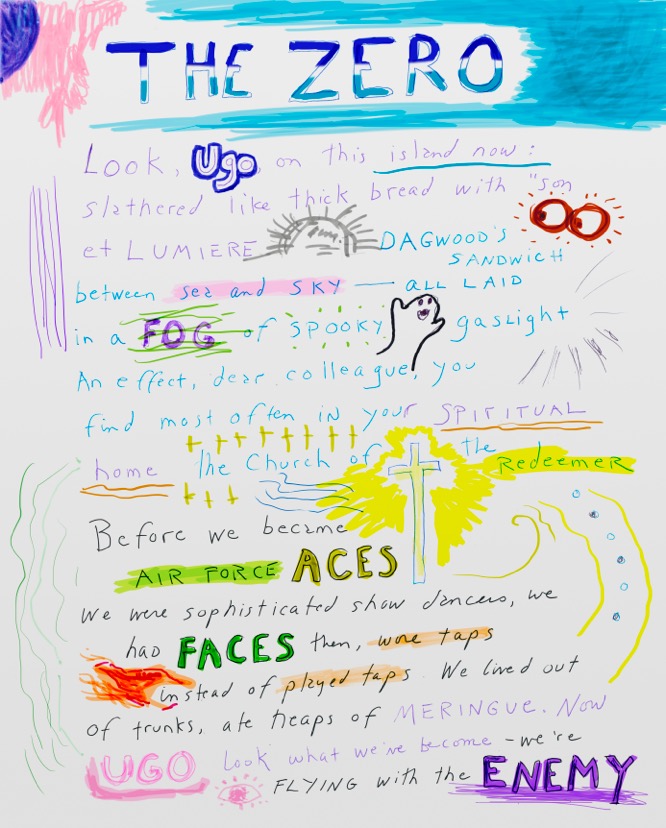 THE ZERO
Look, Ugo, on this island now:
slathered like thick bread with "son
et LUMIERE DAGWOOD'S
SANDWICH
between sea and SKY — ALL LAID
in a FOG of SPOOKY gaslight
An effect, dear colleague, you
find most often in your SPIRITUAL
home the Church of the Redeemer
Before we became
AIR FORCE ACES
We were sophisticated show dancers, we
had FACES then, wore taps
instead of played taps. We lived out
of trunks, ate heaps of MERINGUE. Now
UGO Look what we've become - we're
FLYING with the ENEMY